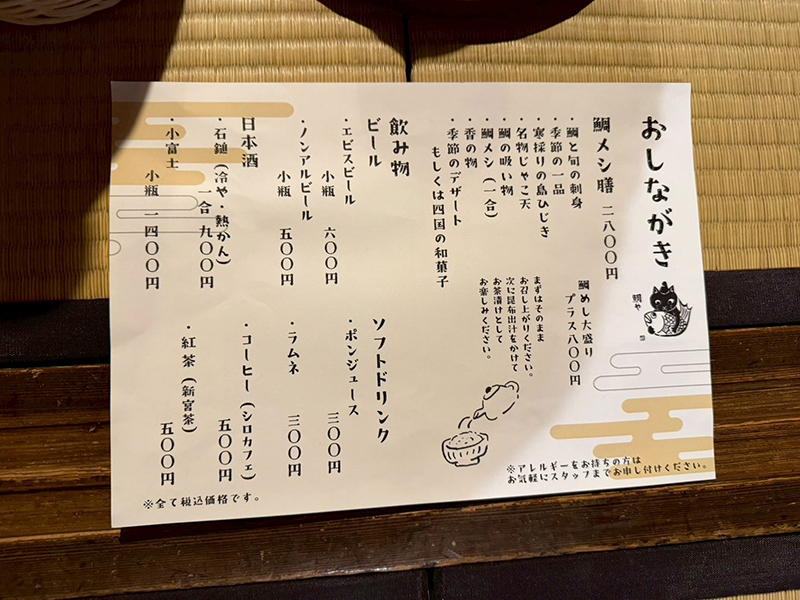 おしながき
鯛や
鯛メシ膳 二八〇〇円
・鯛と旬の刺身
・季節の一品
・寒採りの島ひじき
・名物じゃこ天
・鯛の吸い物
・鯛メシ(一合)
・香の物
・季節のデザート
もしくは四国の和菓子
鯛めし大盛り
プラス八〇〇円
まずはそのまま
お召し上がりください。
次に昆布出汁をかけて
お茶漬けとして
お楽しみください。
※アレルギーをお持ちの方は
お気軽にスタッフまでお申し付けください。
飲み物
ビール
・エビスビール
小瓶 六〇〇円
・ノンアルビール
小瓶 五〇〇円
日本酒
・石鎚(冷や・熱かん)
一合 九〇〇円
・小富士
小瓶 一四〇〇円
ソフトドリンク
・ポンジュース
三〇〇円
・ラムネ
三〇〇円
・コーヒー(シロカフェ)
五〇〇円
・紅茶(新宮茶)
五〇〇円
※全て税込価格です。